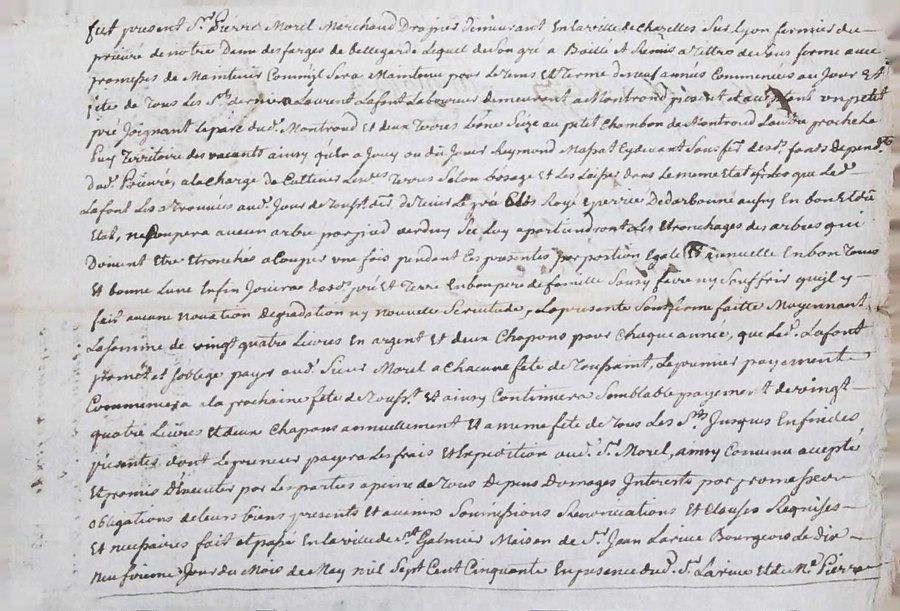 fut present Sr Pierre Morel Marchand Drapier Demeurant En la ville de Chazelles Sur Lyon fermier du
prieuré de notre Dame des farges de Bellegarde Lequel de Son gré a Baillé et Remis a Tittre de Sous ferme avec
promesses de Maintenir Comm'il Sera Maintenu pour Le Tems Et Terme de neuf années Commencées au Jour Et
fête de Tous Les Sts dernier a Laurent Lafont Laboureur demeurant a Montrond present et acceptant un petit
pré Joignant Le parc dud. Montrond Et deux Terres L'une Size au petit Chambon de Montrond L'autre proche Le
Puy Territoire des vacants ainsy qu'en a Jouy ou dû Jouir Raymond Massat Cydevant Sousfer. desd. fonds dependts
dud. Prieuré, a la Charge de Cultiver Lesd. Terres Selon L'usage Et Les Laisser dans Le meme Etat Les que Led.
Lafont Les a trouvées aud. Jour de Touss. der. De tenir Le pré Clos Rayé Epierré aussy En bon Et dû
Etat, ne Coupera aucun arbre par pied verd ny Sec Luy apartiendront Les Etronchages des arbres qui
Doivent Etre Etronchés a Couper une fois pendant Les presentes par portion Egale Et annuelle En bon Tems
Et bonne Lune Enfin Jouira desd. pré Et Terre En bon pere de famille Sans y faire ny Souffrir qu'il y
fait aucune novation degradation ny nouvelle Servitude, La presente Sousferme faitte Moyennant
La Somme de vingt quatre Livres En argent Et deux Chapons pour Chaque année, que Led. Lafont
promet et S'oblige payer aud. Sieur Morel a Chacune fête de Toussaint, Le premier payement
Commencera a la prochaine fête de Touss.t Et ainsy Continuera Semblable payement de vingt
quatre Livres Et deux Chapons annuellement Et a meme fête de Tous Les Sts Jusques En fin des
presentes dont Le preneur payera Les frais Et Expedition aud. Sr Morel, ainsy Convenu accepté
Et promis Executer par Les parties a peine de Tous Depens Domages Interests par promesses
obligations de leurs biens presents et avenirs Soumissions Renonciations Et Clauses Requises
Et necessaires fait et passé En la ville de St Galmier Maison de Sr Jean Larive Bourgeois Le dix
neufvieme Jour du Mois de May mil Sept Cent Cinquante En presence dud. Sr Larive Et de Me Pierre